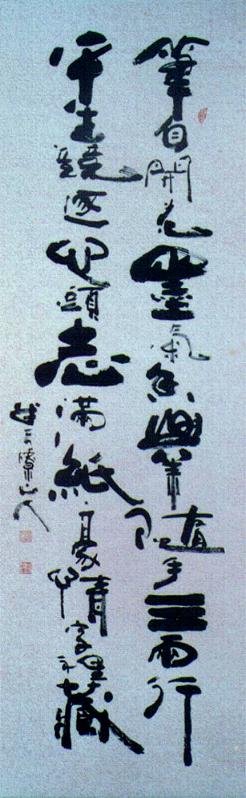 筆自開花墨氣香興來隨手三兩行
平生競逐心頭志滿紙豪情字里藏
山人